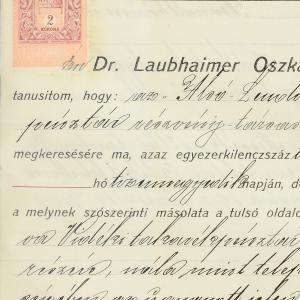 2
KORONA
Dr. Laubhaimer Oszká
tanusitom, hogy: az Alsó-Lendva
pénztár részvény-társas
megkeresésére ma, azaz egyezerkilenczszáz
hó tizennegyedik napján, de
a melynek szószerinti másolata a tulsó oldalo
Vidéki takarékpénztár
részére, nála mint telep